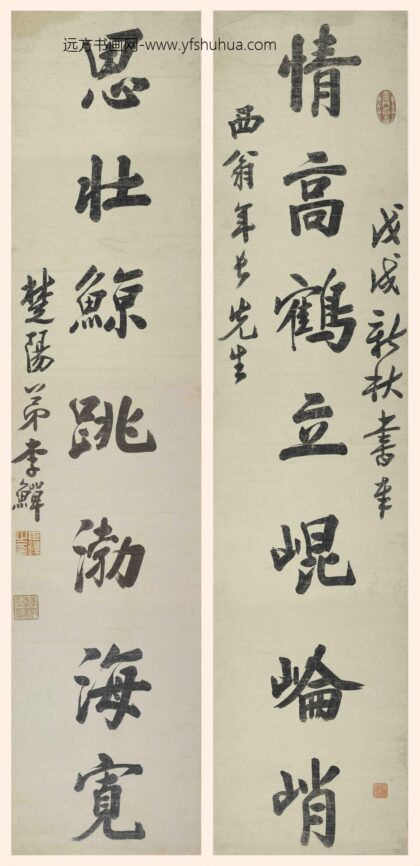 远方书画网-www.yfshuhua.com
戊戌新秋書奉
情高鶴立崐崘峭
西翁年長先生
思壯鯨跳渤海寬
楚陽弟李鱓